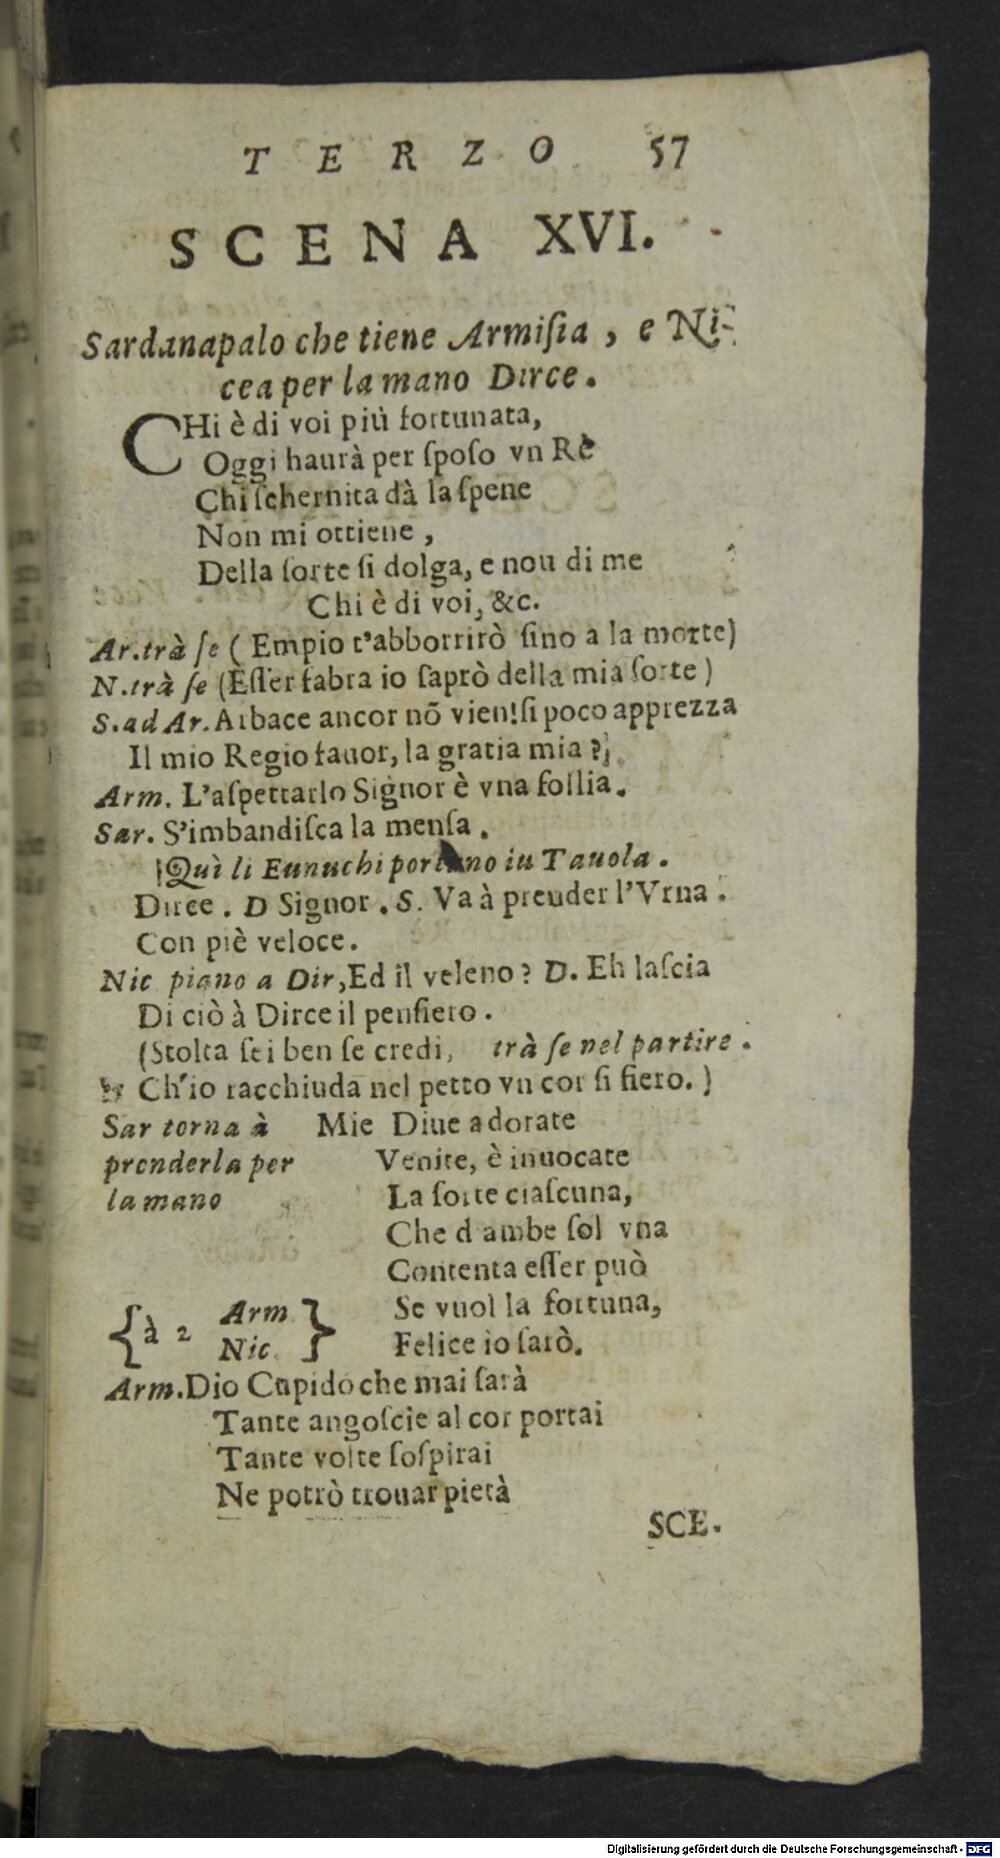 TERZO 57
SCENA XVI.
Sardanapalo che tiene Armiſia, e Ni-
cea per la mano Dirce.
CHi è di voi più fortunata,
Oggi haurà per ſpoſo vn Rè
Chi ſchernita dà la ſpene
Non mi ottiene,
Della ſorte ſi dolga, e nou di me
Chi è di voi, &c.
Ar. trà ſe (Empio t'abborrirò ſino a la morte)
N. trà ſe (Eſſer fabra io ſaprò della mia ſorte)
S. ad Ar. Arbace ancor nõ vien! ſi poco apprezza
Il mio Regio fauor, la gratia mia?
Arm. L'aſpettarlo Signor è vna follia.
Sar. S'imbandiſca la menſa.
Quì li Eunuchi portano iu Tauola.
Dirce. D Signor. S. Va à preuder l'Vrna.
Con piè veloce.
Nic piano a Dir, Ed il veleno? D. Eh laſcia
Di ciò à Dirce il penſiero.
(Stolta ſei ben ſe credi, trà ſe nel partire.
Ch'io racchiuda nel petto vn cor ſi fiero.)
Sar torna à Mie Diue adorate
prenderla per Venite, è inuocate
la mano La ſorte ciaſcuna,
Che d ambe ſol vna
Contenta eſſer può
{à 2 Arm } Se vuol la fortuna,
Nic. Felice io ſarò.
Arm. Dio Cupido che mai ſarà
Tante angoſcie al cor portai
Tante volte ſoſpirai
Ne potrò trouar pietà
SCE.
Digitalisierung gefördert durch die Deutsche Forschungsgemeinschaft - DFG